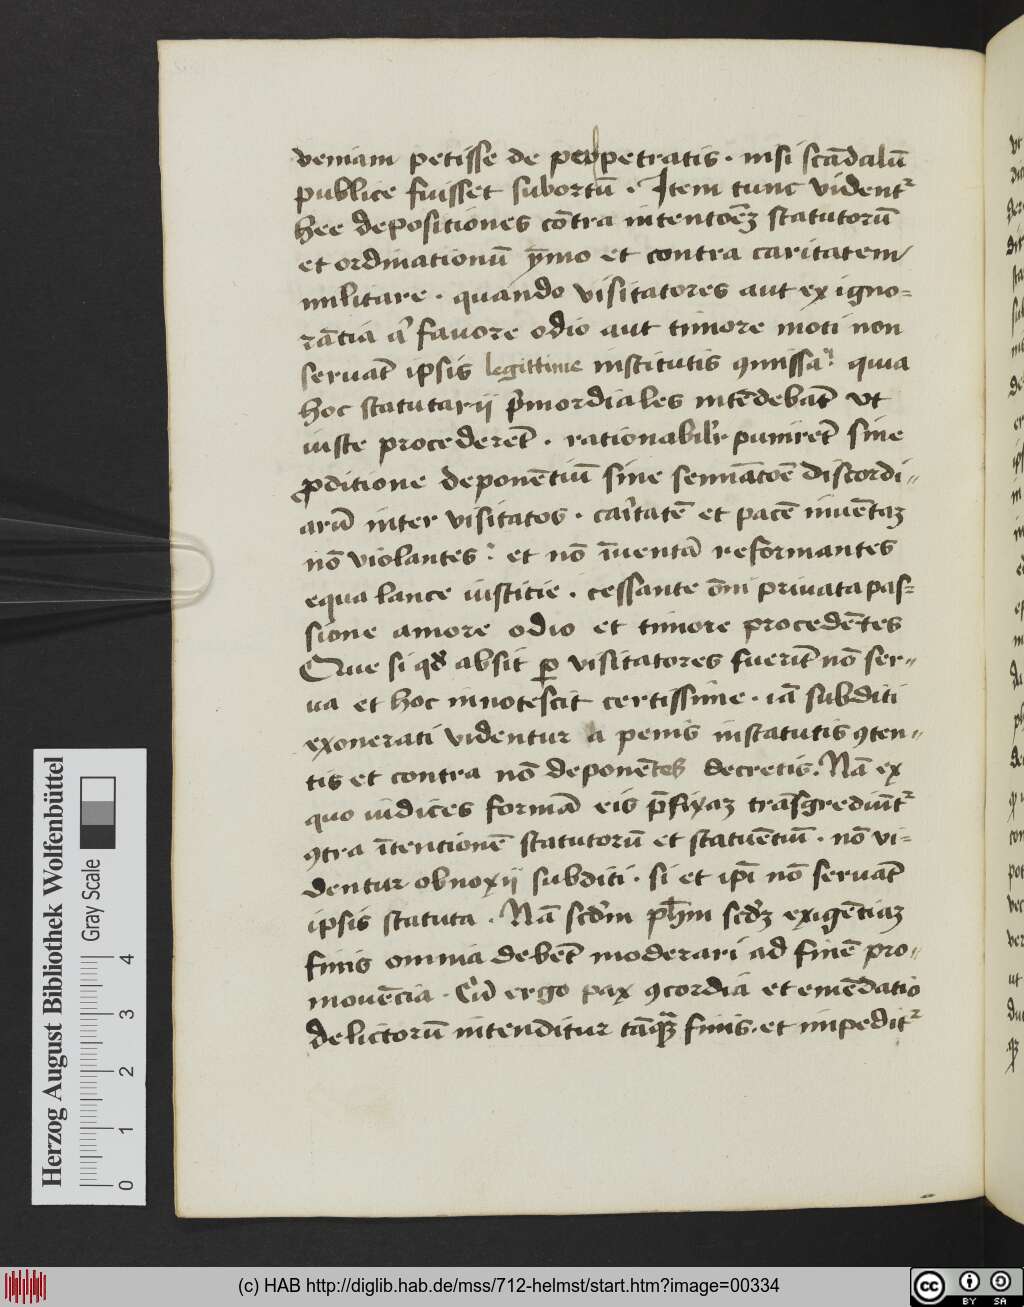 veniam petisse de perpetratis · nisi scādalū
publice fuisset subortū · Item tunc vident᷑
hee depositiones cōtra intentōēȝ statutorū
et ordinationū ȳmo et contra caritatem
militare · quando visitatores aut ex igno=
rātia aͥ favore odio aut timore moti non
seruāt ipsis legittime institutis ꝯmissa · quia
hoc statutarij pͥmordiales intēdebāt vt
iuste procederēt · rationabilr̄ punirēt sine
ꝓditione deponētiū sine seminatōē discordi=
arū inter visitatos · caritatē et pacē inuētaȝ
nō violantes : et nō īuentā reformantes
equa lance iusticie · cessante ōni priuata pas=
sione amore odio et timore procedētes
Que si qd̄ absit ꝑ visitatores fuerīt nō ser=
ua et hoc innotescit certissime · iā subditi
exonerati videntur a penis in statutis ꝯten=
tis et contra nō deponētes decretis. Nā ex
quo iudices formā eis p̄fixaȝ trāsgrediūt᷑
ꝯtra ītentionē statutorū et statuētiū · nō vi=
dentur obnoxij subditi · si et ip̄i nō seruāt
ipsis statuta · Nā scd̄m ph̄m scd̄ȝ exigētiaȝ
finis omnia debēt moderari ad finē pro=
mouēcia · Cū ergo pax ꝯcordia et emēdatio
delictorū intenditur tāqȝ finis · et impedit᷑
Herzog August Bibliothek Wolfenbüttel
Gray Scale
0 1 2 3 4
(c) HAB http://diglib.hab.de/mss/712-helmst/start.htm?image=00334
cc BY SA